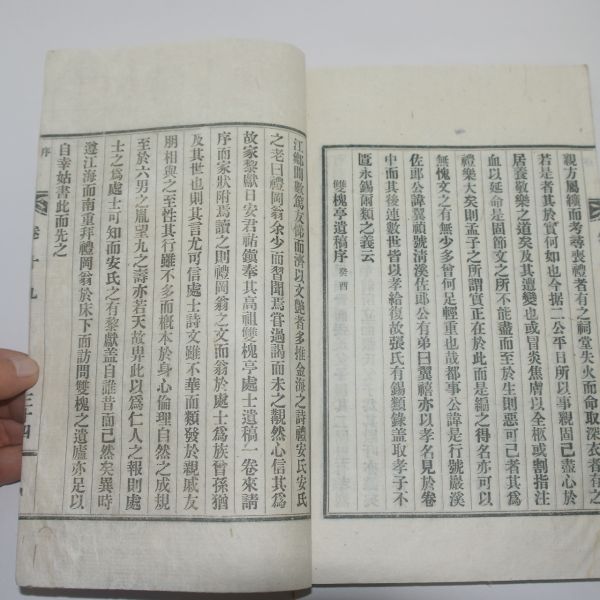 親方屬纊而考尋喪禮者有之祠堂失火而命取深衣者有之
若是者其於實何如也今據二公平日所以事親固已盡心於
居養敬樂之道矣及其遭變也或冒炎焦膚以全柩或割指注
血以延命是固節文之所不能盡而至於生則惡可已者其爲
禮樂大矣則孟子之所謂實正在於此而是編之得名亦可以
無愧文之有無少多曾何足輕重也哉都事公諱是行號嚴溪
佐郎公諱翼禎號淸溪佐郎公有弟曰翼禧亦以孝名見於卷
中而其後連數世皆以孝給復故張氏有錫類錄蓋取孝子不
匱永錫爾類之義云
雙槐亭遺稿序 癸酉
江鄕間數爲友儕而濟以文艶者多推金海之詩禮安氏安氏
之老曰禮岡翁余少而習聞焉嘗過謁而未之覿然心信其爲
故家黎獻日安君祐鎭奉其高祖雙槐亭處士遺稿一卷來請
序而家狀附焉讀之則禮岡翁之文而翁於處士爲族曾孫猶
及其世也則其言尤可信處士詩文雖不華而類發於親戚友
朋相與之至性其行雖不多而槪本於身心倫理自然之成規
至於六男之胤望九之壽亦若天故畀此以爲仁人之報則處
士之爲處士可知而安氏之有黎獻盖自誰昔而已然矣異時
遵江海而南重拜禮岡翁於床下而訪問雙槐之遺廬亦足以
自幸姑書此而先之
序
卷十九
三十四